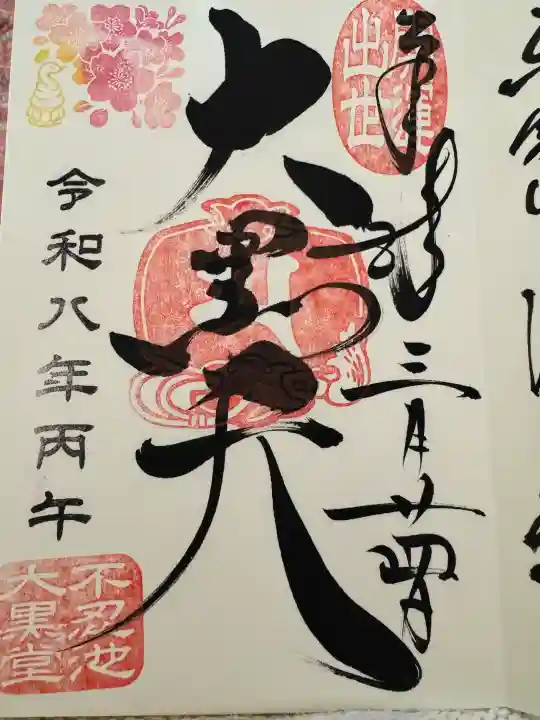 奉拝
三月廿四日
出世
大黒天
令和八年丙午
不忍池
大黒堂